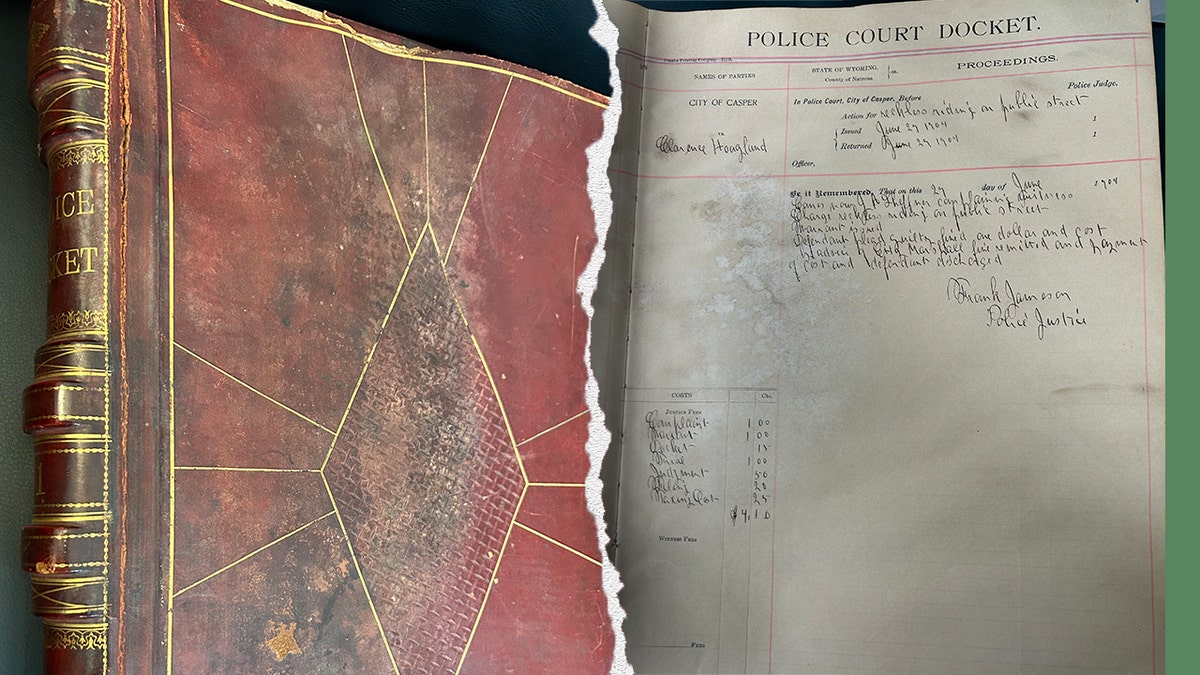 ICE
KET
1
POLICE COURT DOCKET.
NAMES OF PARTIES
STATE OF WYOMING,
County of Natrona
ss.
PROCEEDINGS.
CITY OF CASPER
In Police Court, City of Casper, Before
Police Judge,
Action for reckless riding on public street
Clarence Hoagland
Issued June 27 1904
1
Returned June 27 1904
1
Officer,
Be it Remembered, That on this 27 day of June 1904
Comes now complaining witness
Charge reckless riding on public street
Warrant issued
Defendant plead guilty fined one dollar and cost
of Marshall fine remitted and payment
of cost and defendant discharged
Frank Jameson
Police Justice
COSTS
Cts.
JUSTICE FEES
Complaint 1 00
Warrant 1 00
Docket 15
Trial 1 00
Judgment 50
20
Taxing Cost 25
$ 4.10
WITNESS FEES
FEES